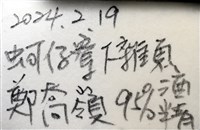 2024.2.19
蚵仔寮 下雜頁
鄭喬嶺 95%酒精